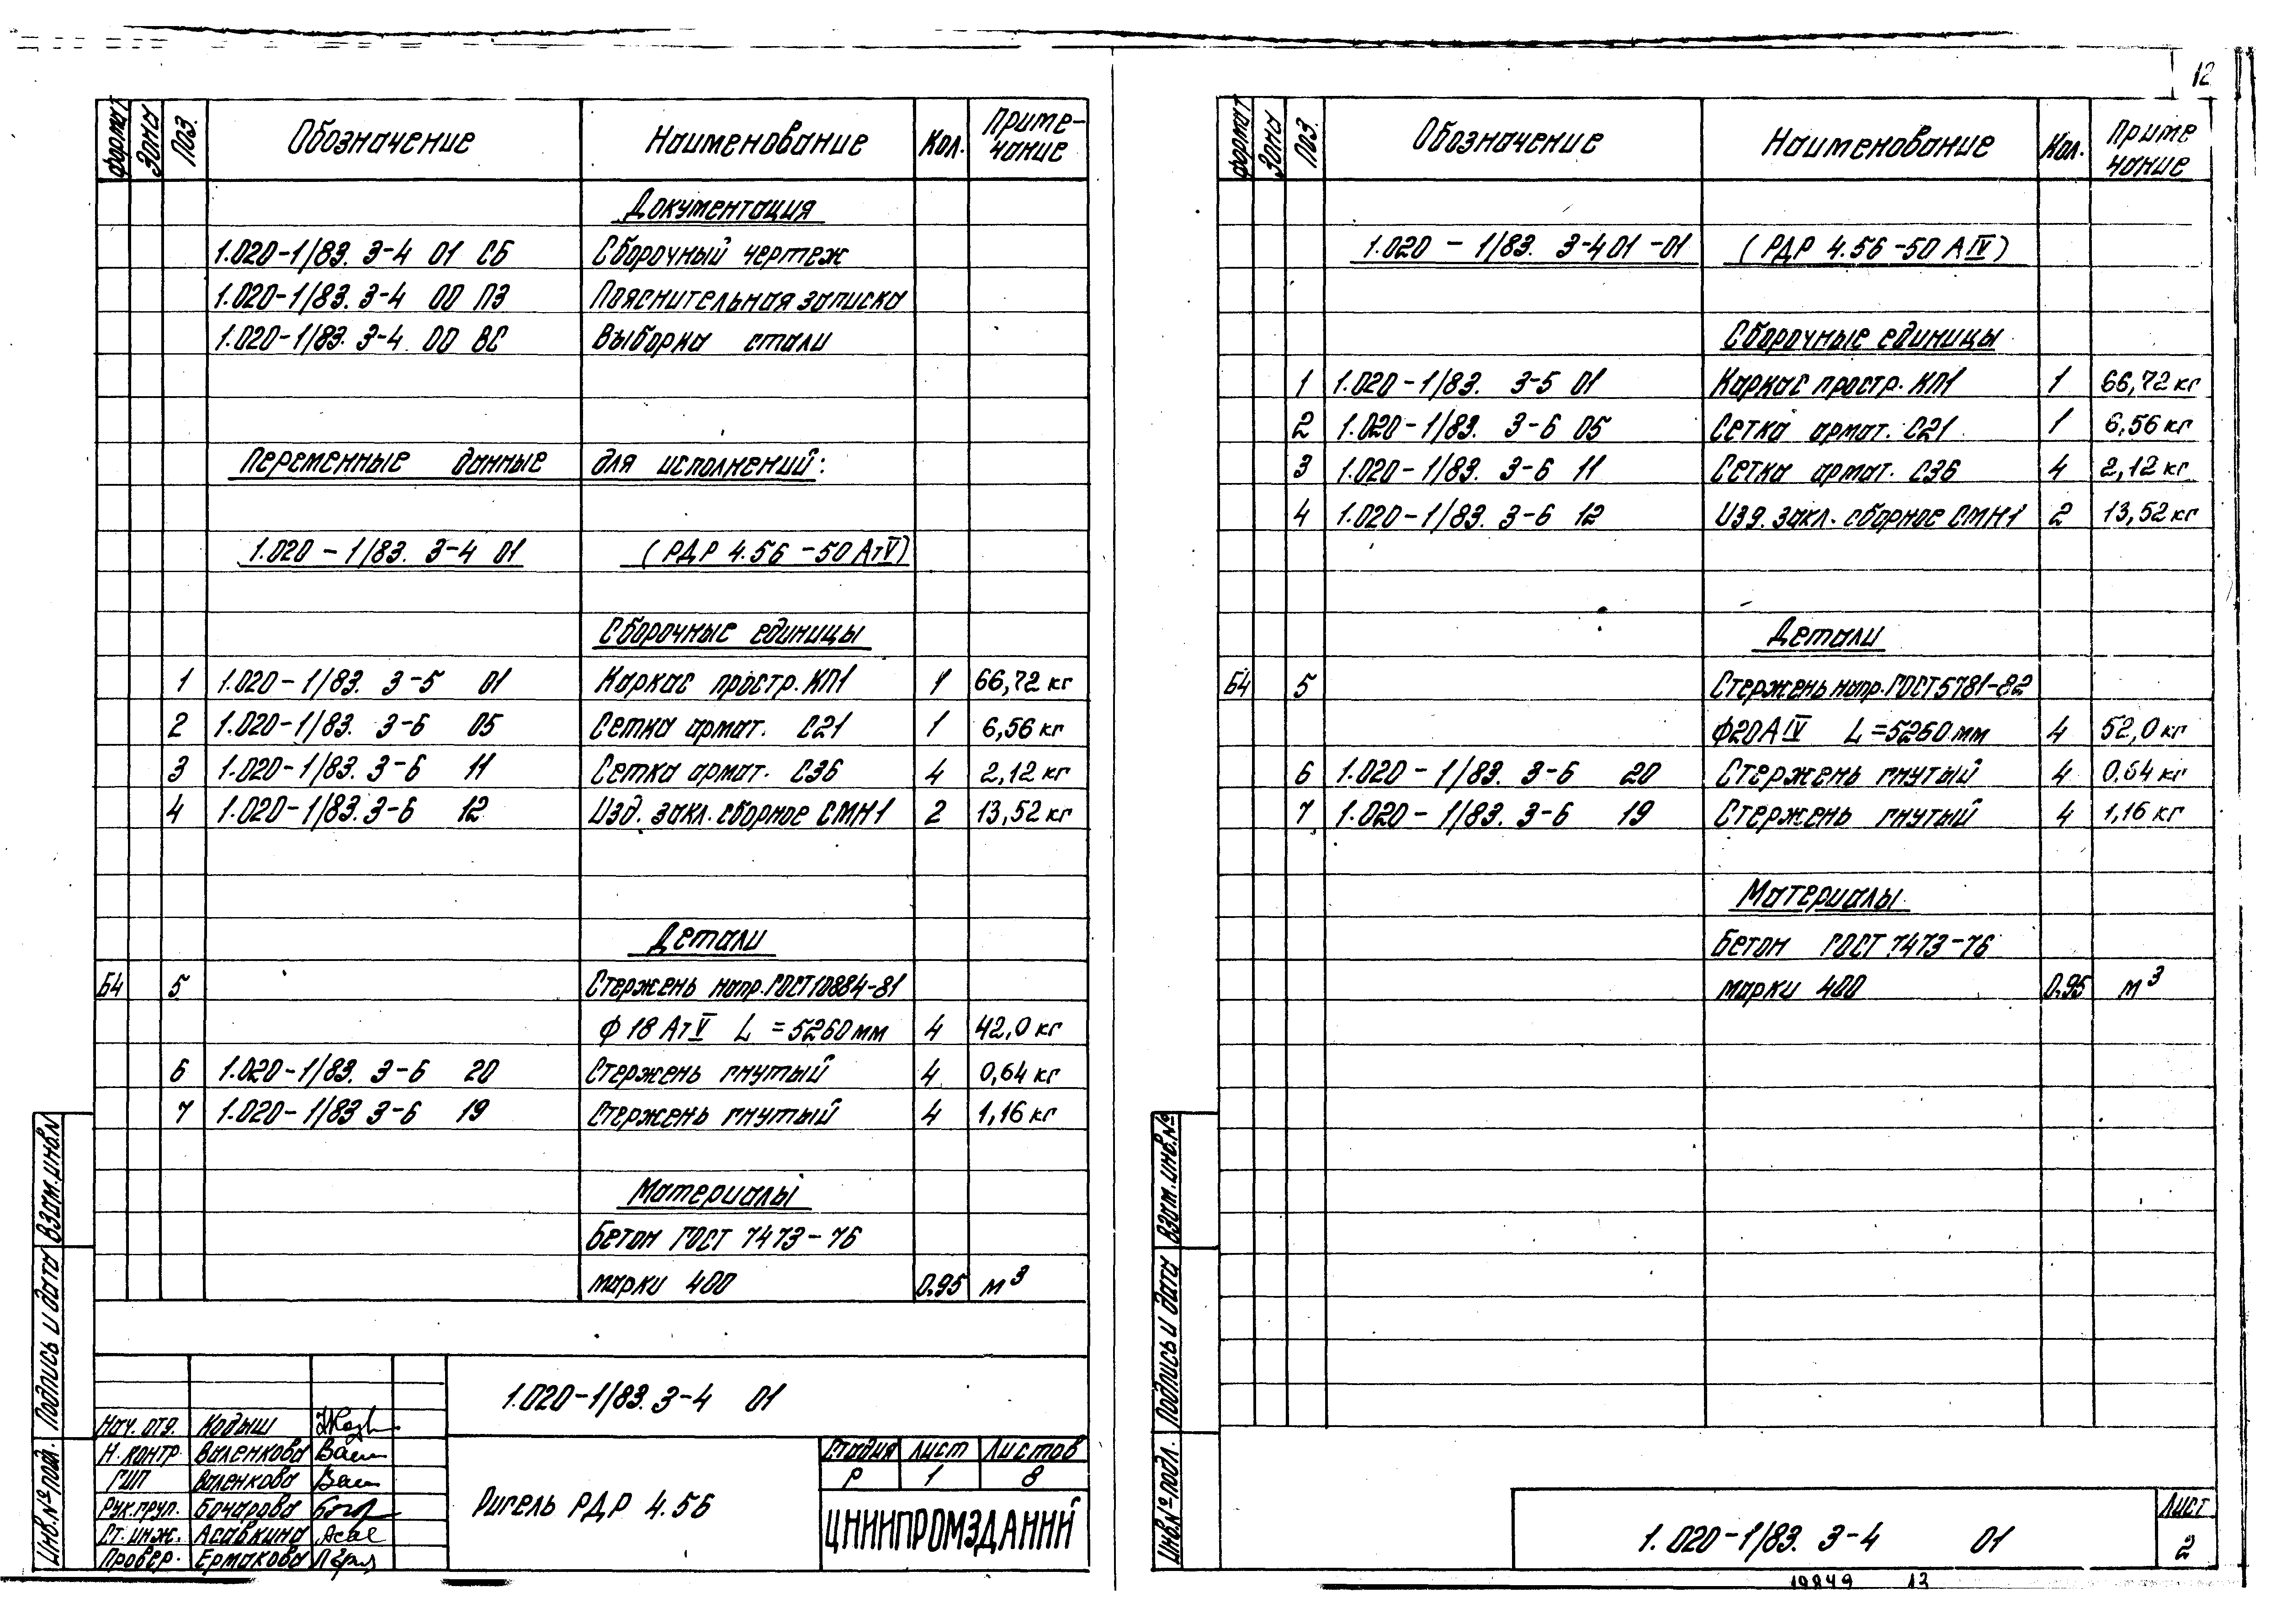 12
формат Зона Поз. Обозначение Наименование Кол. Приме-
чание
Документация
1.020-1/83. 3-4 01 СБ Сборочный чертеж
1.020-1/83. 3-4 00 ПЗ Пояснительная записка
1.020-1/83. 3-4 00 ВС Выборка стали
Переменные данные для исполнений:
1.020-1/83. 3-4 01 (РДР 4.56-50 АтV)
Сборочные единицы
1 1.020-1/83. 3-5 01 Каркас простр. КП1 1 66,72 кг
2 1.020-1/83. 3-6 05 Сетка армат. С21 1 6,56 кг
3 1.020-1/83. 3-6 11 Сетка армат. С36 4 2,12 кг
4 1.020-1/83. 3-6 12 Изд. закл. сборное СМН1 2 13,52 кг
Детали
Б4 5 Стержень напр. ГОСТ 10884-81
Ф 18 АтV L = 5260 мм 4 42,0 кг
6 1.020-1/83. 3-6 20 Стержень гнутый 4 0,64 кг
7 1.020-1/83 3-6 19 Стержень гнутый 4 1,16 кг
Материалы
Бетон ГОСТ 7473-76
марки 400 0.95 м³
Инв.№ подл. Подпись и дата Взам.инв.№
1.020-1/83. 3-4 01
Нач. отд. Кодыш
Н. контр. Валенкова
ГИП Валенкова
Рук.груп. Бочарова
Ст. инж. Асавкина
Провер. Ермакова
Ригель РДР 4.56
Стадия Лист Листов
Р 1 8
ЦНИИПРОМЗДАНИЙ
формат Зона Поз. Обозначение Наименование Кол. Приме
чание
1.020-1/83. 3-4 01-01 (РДР 4.56-50 АIV)
Сборочные единицы
1 1.020-1/83. 3-5 01 Каркас простр. КП1 1 66,72 кг
2 1.020-1/83. 3-6 05 Сетка армат. С21 1 6,56 кг
3 1.020-1/83. 3-6 11 Сетка армат. С36 4 2,12 кг
4 1.020-1/83. 3-6 12 Изд. закл. сборное СМН1 2 13,52 кг
Детали
Б4 5 Стержень напр. ГОСТ 5781-82
Ф20 АIV L = 5260 мм 4 52,0 кг
6 1.020-1/83. 3-6 20 Стержень гнутый 4 0.64 кг
7 1.020-1/83. 3-6 19 Стержень гнутый 4 1,16 кг
Материалы
Бетон ГОСТ 7473-76
марки 400 0.95 м³
Инв.№ подл. Подпись и дата Взам.инв.№
1.020-1/83. 3-4 01
Лист
2
19849 13